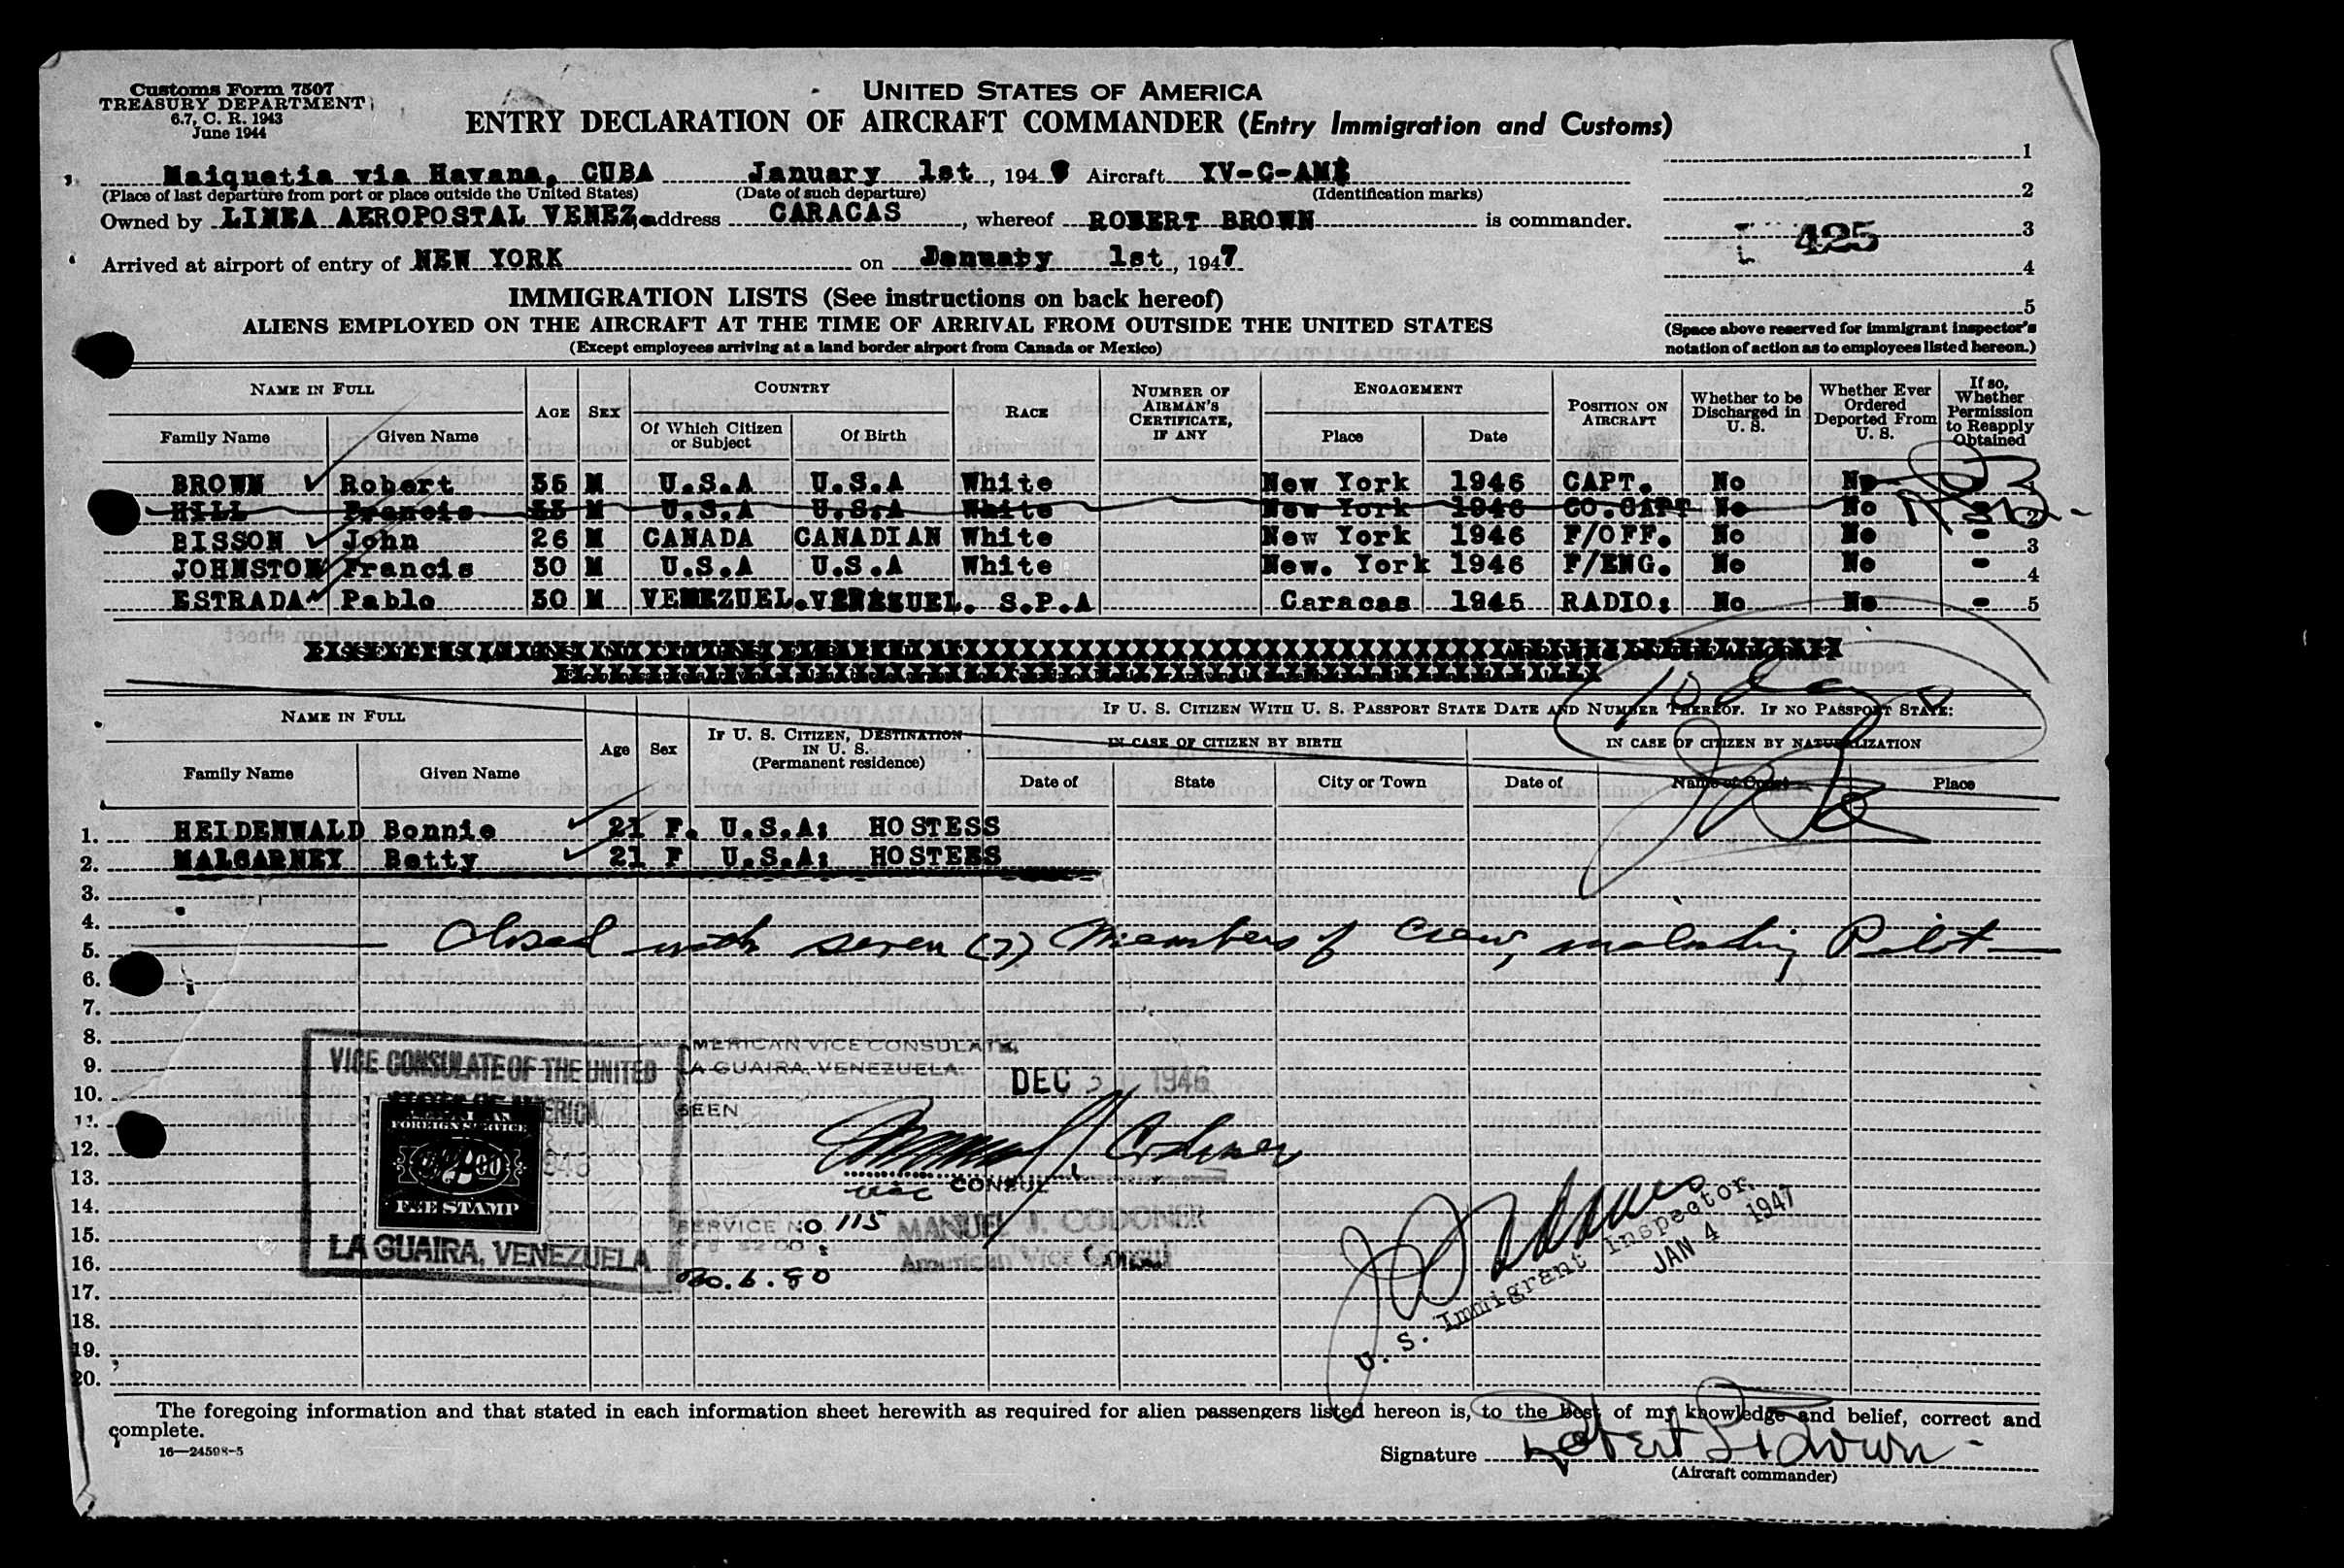 Customs Form 7507
TREASURY DEPARTMENT
6.7, C. R. 1943
June 1944
UNITED STATES OF AMERICA
ENTRY DECLARATION OF AIRCRAFT COMMANDER (Entry Immigration and Customs)
Maiquetia via Havana, CUBA January 1st, 194 Aircraft YV-C-AM
(Place of last departure from port or place outside the United States) (Date of such departure) (Identification marks)
Owned by LINEA AEROPOSTAL VENEZ, address CARACAS, whereof ROBERT BROWN is commander.
Arrived at airport of entry of NEW YORK on January 1st, 1947
1
2
3
4
5
425
(Space above reserved for immigrant inspector's
notation of action as to employees listed hereon.)
IMMIGRATION LISTS (See instructions on back hereof)
ALIENS EMPLOYED ON THE AIRCRAFT AT THE TIME OF ARRIVAL FROM OUTSIDE THE UNITED STATES
(Except employees arriving at a land border airport from Canada or Mexico)
NAME IN FULL AGE SEX COUNTRY RACE NUMBER OF AIRMAN'S CERTIFICATE, IF ANY ENGAGEMENT POSITION ON AIRCRAFT Whether to be Discharged in U. S. Whether Ever Ordered Deported From U. S. If so, Whether Permission to Reapply Obtained
Family Name Given Name Of Which Citizen or Subject Of Birth Place Date
BROWN Robert 35 M U.S.A U.S.A White New York 1946 CAPT. No No
HILL Francis 35 M U.S.A U.S.A White New York 1946 CO.CAPT No No - 2
BISSON John 26 M CANADA CANADIAN White New York 1946 F/OFF. No No - 3
JOHNSTON Francis 30 M U.S.A U.S.A White New. York 1946 F/ENG. No No - 4
ESTRADA Pablo 30 M VENEZUEL. VENEZUEL. S.P.A Caracas 1945 RADIO: No No - 5
10 days
NAME IN FULL Age Sex IF U. S. CITIZEN, DESTINATION IN U. S. (Permanent residence) IF U. S. CITIZEN WITH U. S. PASSPORT STATE DATE AND NUMBER THEREOF. IF NO PASSPORT STATE:
IN CASE OF CITIZEN BY BIRTH IN CASE OF CITIZEN BY NATURALIZATION
Family Name Given Name Date of State City or Town Date of Name of Court Place
1. HEIDENWALD Bonnie 21 F. U.S.A: HOSTESS
2. MALGARNEY Betty 21 F U.S.A: HOSTESS
3.
4.
5. Closed with seven (7) Members of Crew, including Pilot
6.
7.
8.
9.
10.
11.
12.
13.
14.
15.
16.
17.
18.
19.
20.
VICE CONSULATE OF THE UNITED
STATES OF AMERICA
FOREIGN SERVICE
FEE STAMP
LA GUAIRA, VENEZUELA
AMERICAN VICE CONSULATE,
LA GUAIRA, VENEZUELA.
SEEN
DEC 1946
Manuel J Codoner
Vice CONSUL
SERVICE NO. 115
MANUEL J. CODONER
American Vice Consul
Bo. 6.80
U. S. Immigrant Inspector.
JAN 4 1947
The foregoing information and that stated in each information sheet herewith as required for alien passengers listed hereon is, to the best of my knowledge and belief, correct and
complete.
16—24598-5
Signature Robert Brown
(Aircraft commander)